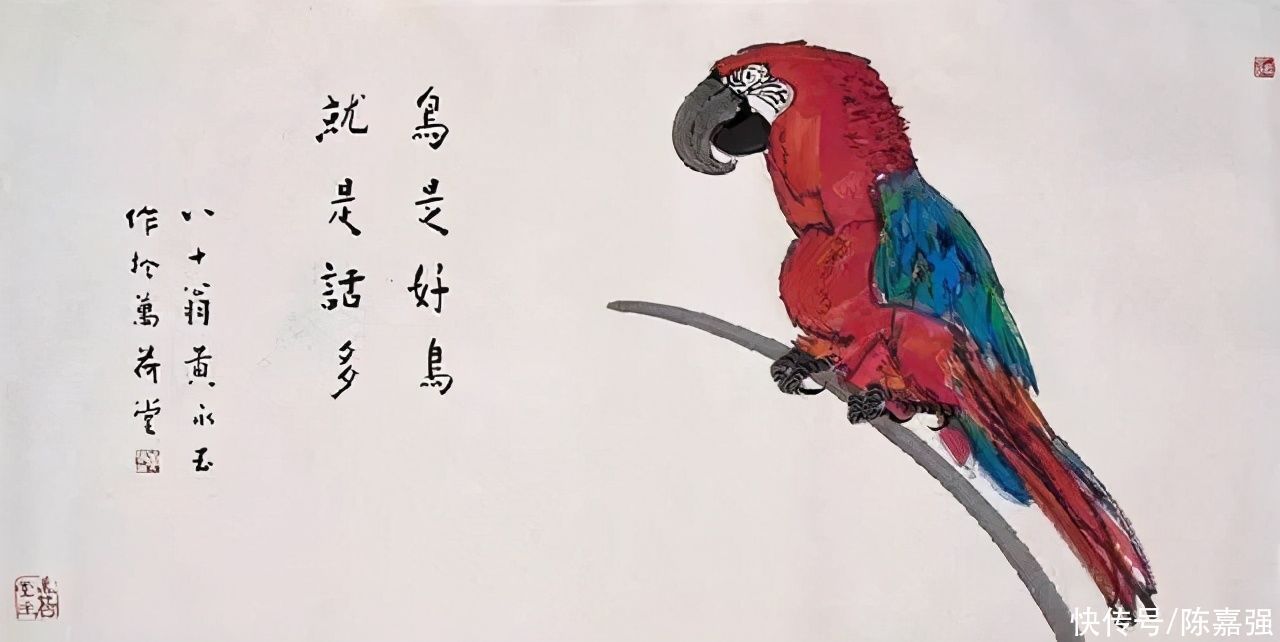 鳥是好鳥
就是話多
八十翁黃永玉
作於萬荷堂
快传号/陈嘉强